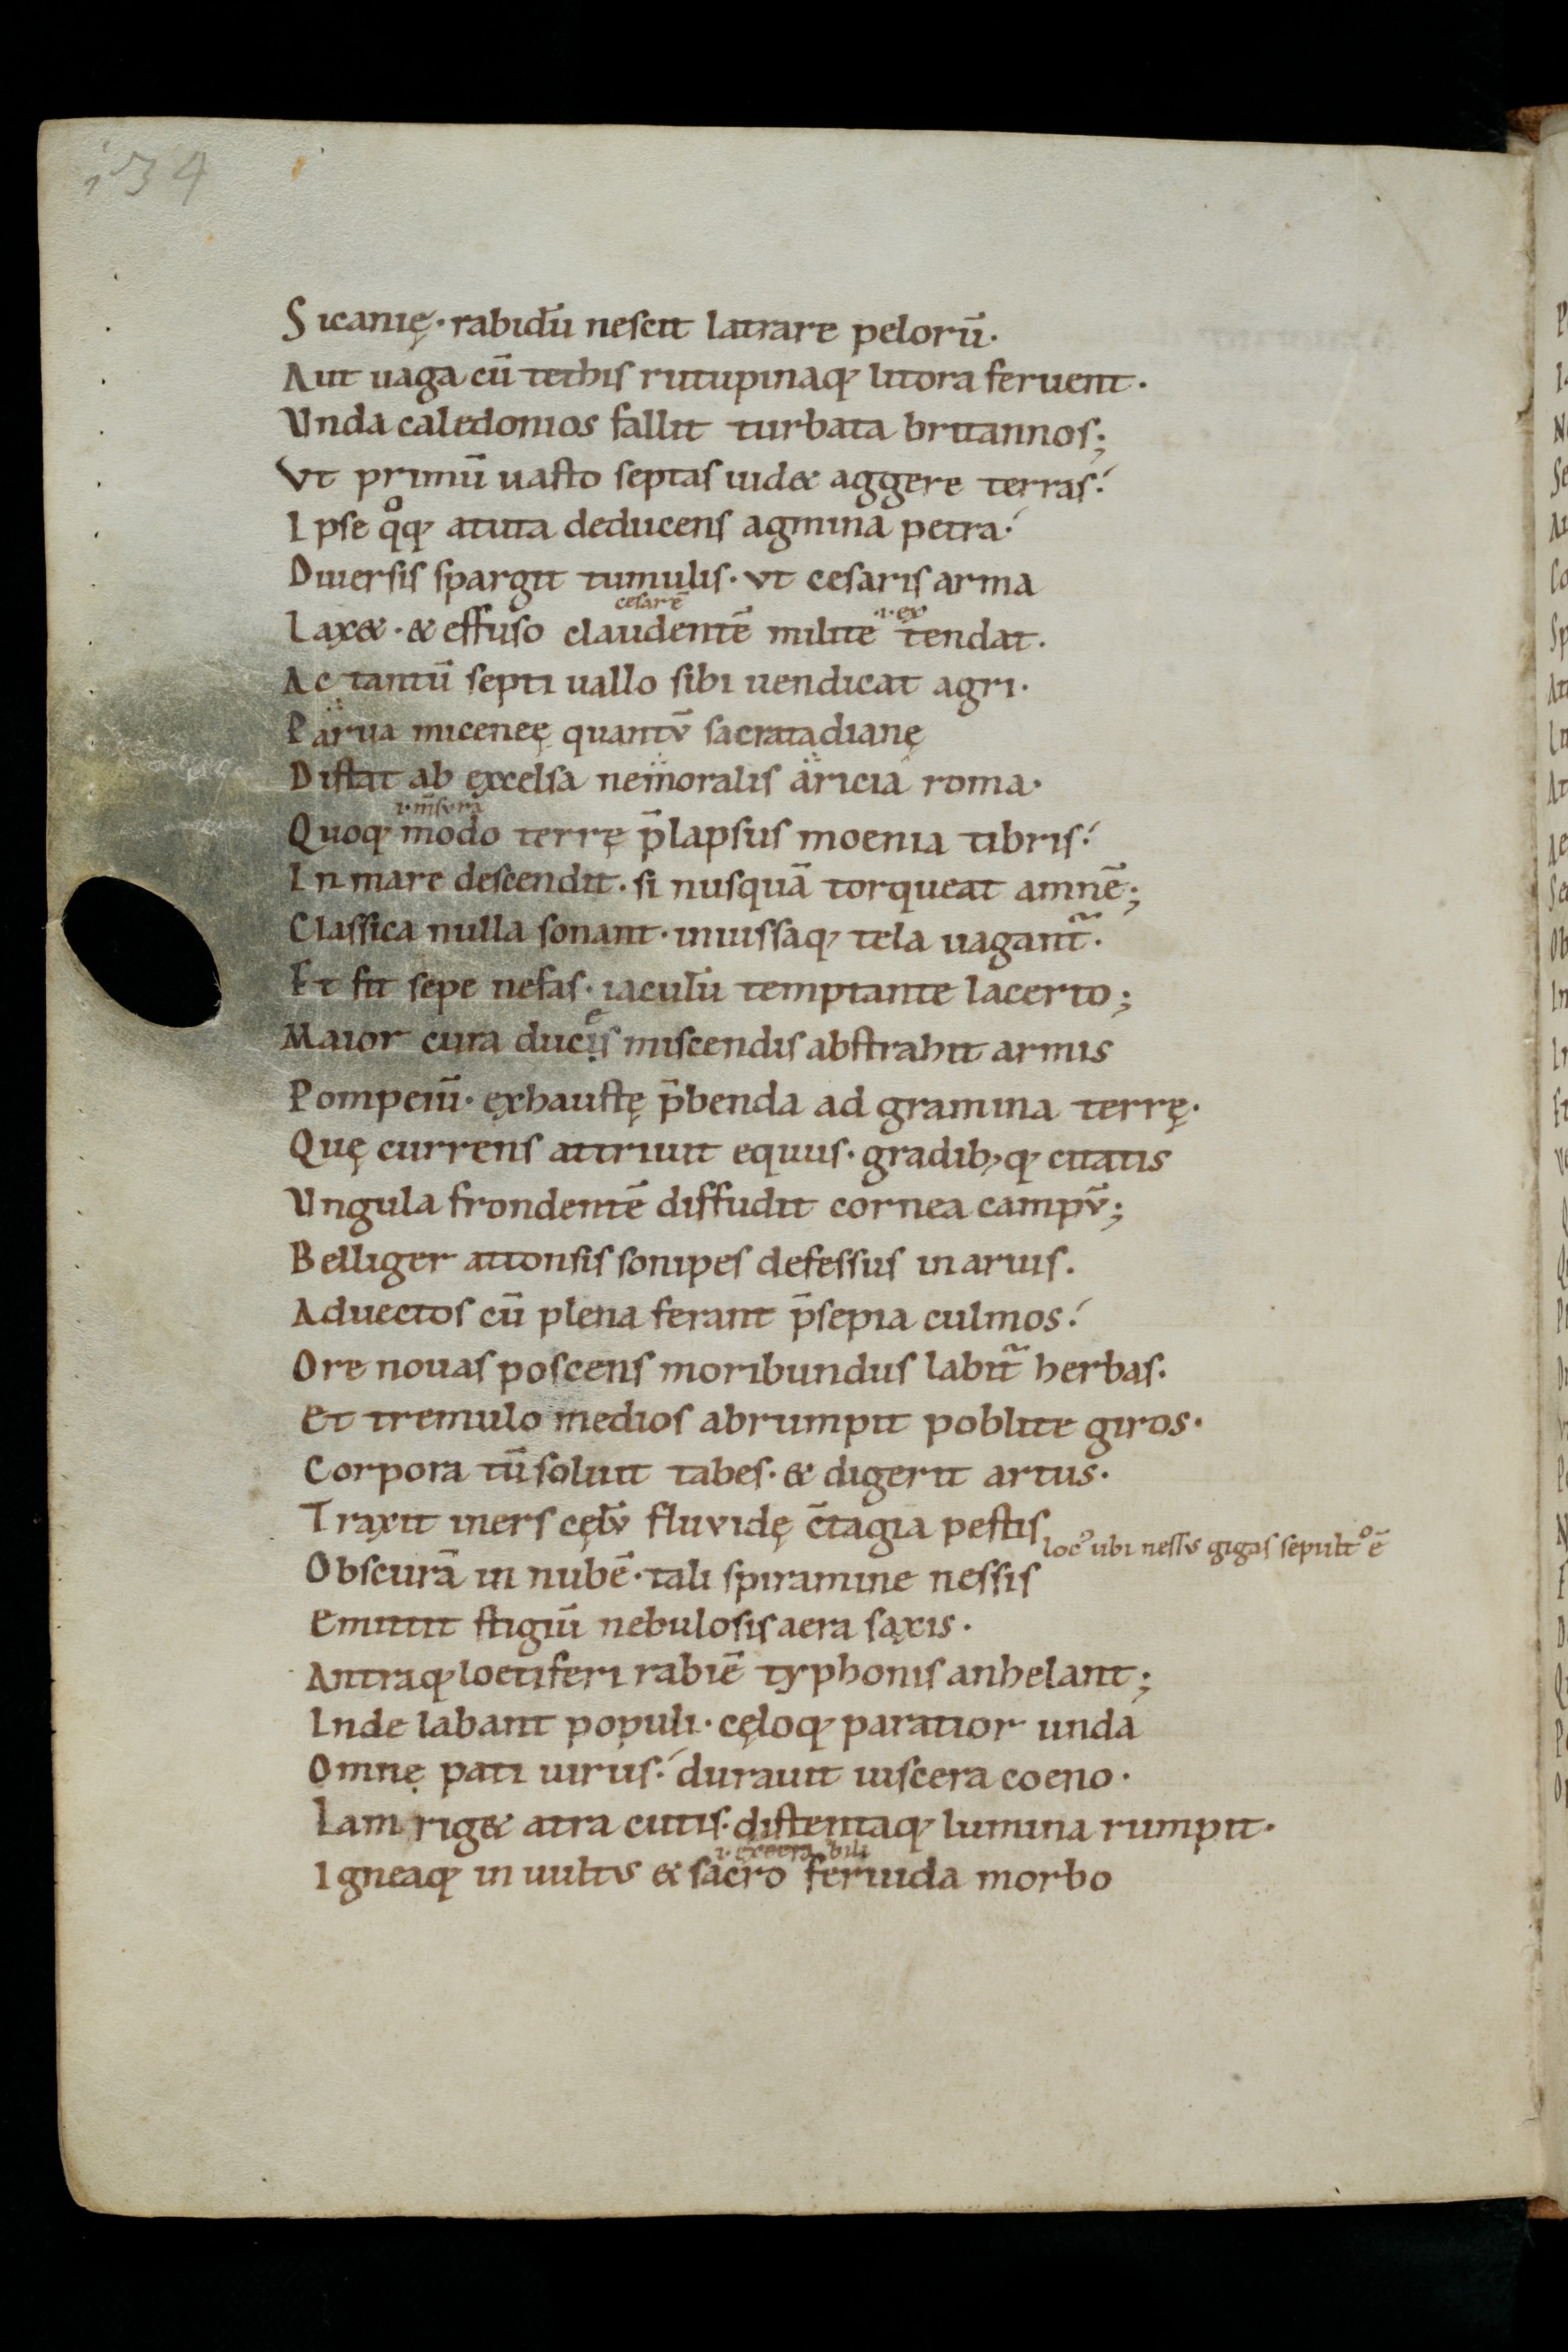 134
Sicanię· rabidū nescit latrare pelorū·
Aut uaga cū tethis rutupinaq; litora feruent·
Vnda caledonios fallit turbata britannos;
Vt primū uasto septas uid& aggere terras·́
Ipse qͦq; a tuta deducens agmina petra·́
Diuersis spargit tumulis· vt cesaris arma
cesarē ·i·ex
Lax&· & effuso claudentē milite tendat·
Ac tantū septi uallo sibi uendicat agri·
Parua miceneę quantv̄ sacrata dianę
Distat ab excelsa nemoralis aricia roma·
i·m̄svra
Quoq; modo terrę p̄lapsus moenia tibris·́
In mare descendit· si nusquā torqueat amnē;
Classica nulla sonant· iniussaq; tela uagant̄·
Et fit sepe nefas· iaculū temptante lacerto;
Maior cura ducis miscendis abstrahit armis
Pompeiū· exhaustę p̄benda ad gramina terrę·
Quę currens attriuit equus· gradib;q; citatis
Vngula frondentē diffudit cornea campv̄;
Belliger attonsis sonipes defessus in aruis·
Aduectos cū plena ferant p̄sepia culmos·́
Ore nouas poscens moribundus labit̄ herbas·
Et tremulo medios abrumpit poblite giros·
Corpora tū soluit tabes· & digerit artus·
Traxit iners cęlv̄ fluvidę c̄tagia pestis
loc᾽ ubi nessvs gigas sepultͦ ē
Obscurā in nubē· tali spiramine nessis
Emittit stigiū nebulosis aera saxis·
Antraq; loetiferi rabiē typhonis anhelant;
Inde labant populi· cęloq; paratior unda
Omnę pati uirus·́ durauit uiscera coeno·
Iam rig& atra cutis· distentaq; lumina rumpit·
i·execrabili
Igneaq; in uultvs & sacro feruida morbo